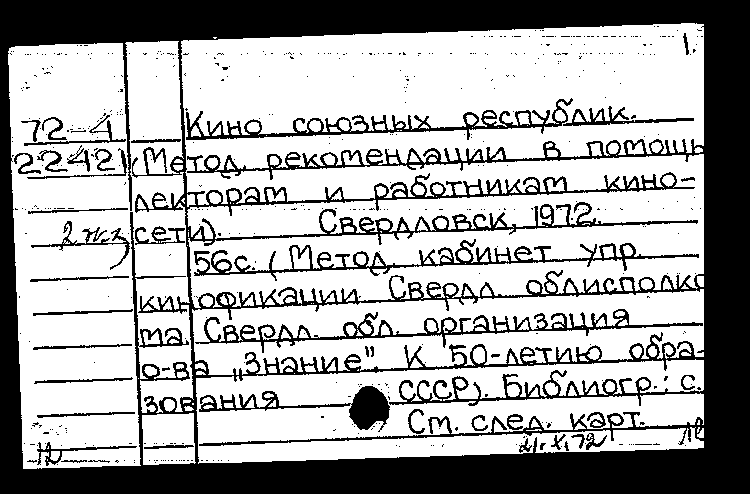 1.
72-4 Кино союзных республик.
22421 (Метод. рекомендации в помощь
лекторам и работникам кино-
2 экз сети). Свердловск, 1972.
56с. (Метод. кабинет упр.
кинофикации Свердл. облисполко
та. Свердл. обл. организация
о-ва „Знание". К 50-летию обра-
зования СССР). Библиогр.: с.
См. след. карт.
12 21.X.72 12